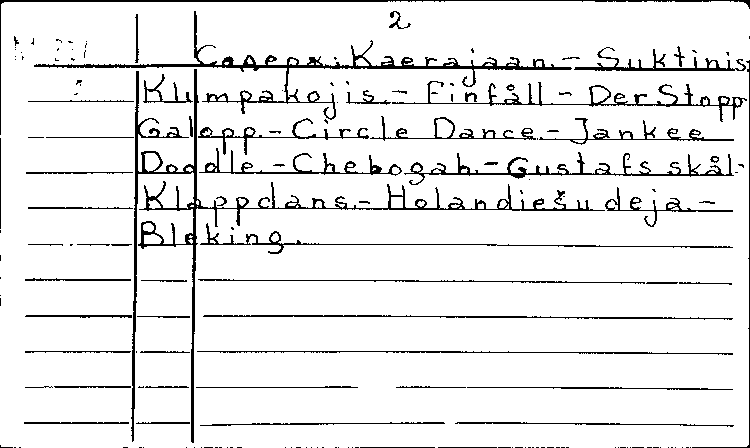 2
Содерж.: Kaerajaan. - Suktinis
Klumpakojis. - Finfåll - Der Stopp
Galopp. - Circle Dance. - Jankee
Doodle. - Chebogah. - Gustafs skål.
Klappdans. - Holandiešu deja. -
Bleking.